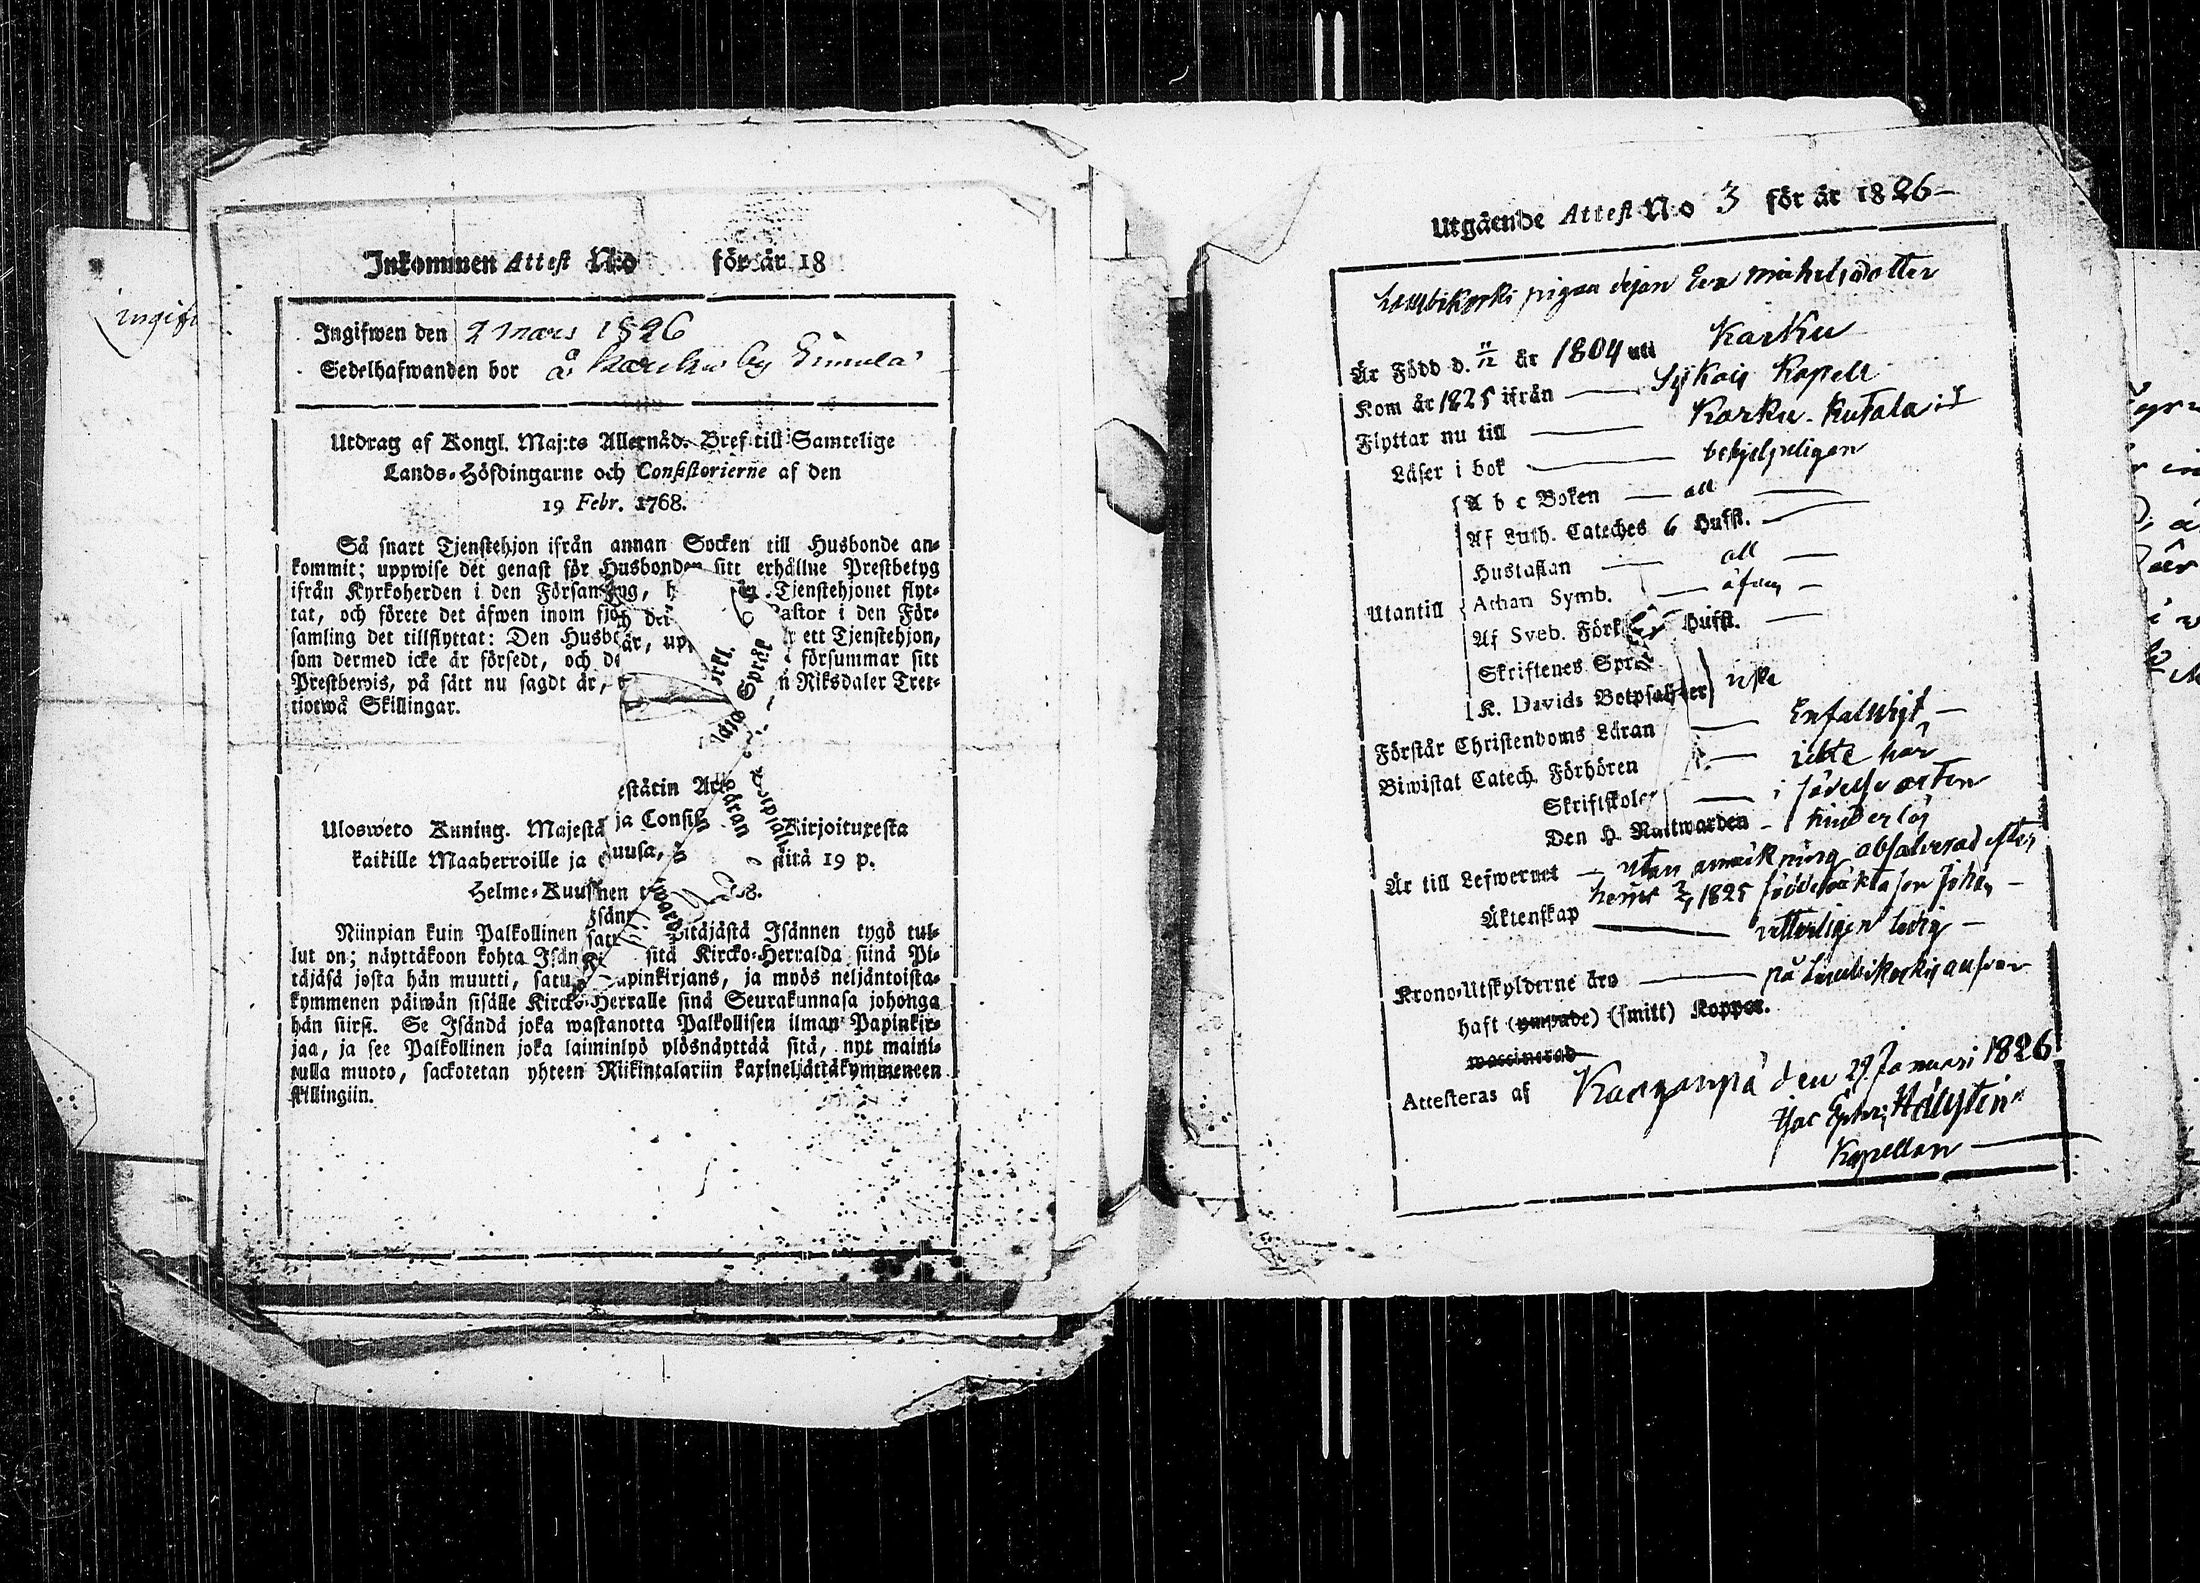 Inkommen Attest N:o för år 18
Ingifwen den 2 mars 1826
Sedelhafwanden bor å Karkku by
Utdrag af Kongl. Maj:ts Allernåd. Bref till Samtelige
Lands-Höfdingarne och Consistorierne af den
19 Febr. 1768.
Så snart Tjenstehjon ifrån annan Socken till Husbonde an-
kommit; uppwise det genast för Husbonden sitt erhållne Prestbetyg
ifrån Kyrkoherden i den Försam Tjenstehjonet flyt-
tat, och förete det äfwen inom astor i den För-
samling det tillflyttat: Den Husb ett Tjenstehjon,
som dermed icke är försedt, och försummar sitt
Prestbewis, på sätt nu sagdt är, Riksdaler Tret-
tiotwå Skillingar.
Ulosweto Kuning. Majestä Kirjoituxesta
kaikille Maaherroille ja sitä 19 p.
Helme-Kuusnen
Niinpian kuin Palkollinen pitäjästä Isännen tygö tul-
lut on; näyttäkoon kohta Isän sitä Kircko-Herralda siinä Pi-
täjäsä josta hän muutti, satu apinkirjans, ja myös neljäntoista-
kymmenen päiwän sisälle Kircko-Herralle sinä Seurakunnasa johonga
hän siirsi. Se Isändä joka wastanotta Palkollisen ilman Papinkir-
jaa, ja see Palkollinen joka laiminlyö ylösnäyttää sitä, nyt maini-
tulla muoto, sackotetan yhteen Riikintalariin kaxineljättäkymmeneen
skillingiin.
Utgående Attest N:o 3 för år 1826
pigan Eva Michelsdotter
Är Född d. 11/12 år 1804 uti Karku
Kom år 1825 ifrån Kapell
Flyttar nu till Karku. Kutala
Läser i bok behjelpeligen
A b c Boken all
Af Luth. Cateches 6 Hufst.
Hustaflan all
Utantill Athan Symb. äfven
Af Sveb. Förk Hufst.
Skriftenes Spr
K. Davids Botpsalmer
Förstår Christendoms Läran Enfaldigt
Biwistat Catech. Förhören icke här
Skriftskolor i födelse orten
Den H. Nattwarden hinderlös
Är till Lefwernet utan anmärkning absolverad efter
1825 son Johan
Äktenskap vitterligen ledig
Krono-Utskylderne äro på
haft (ympade) (smitt) Koppor.
waccinerad
Attesteras af Kanganpä den 29 Januari 1826
Jac Ephr:
Kapellan